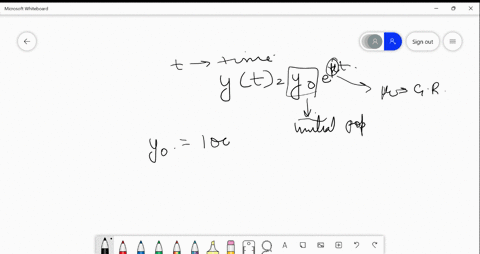 Microsoft Whiteboard
Sign out
t → time
y(t) = y₀ e^μt
μ → G.R.
initial pop
y₀ = 100
A